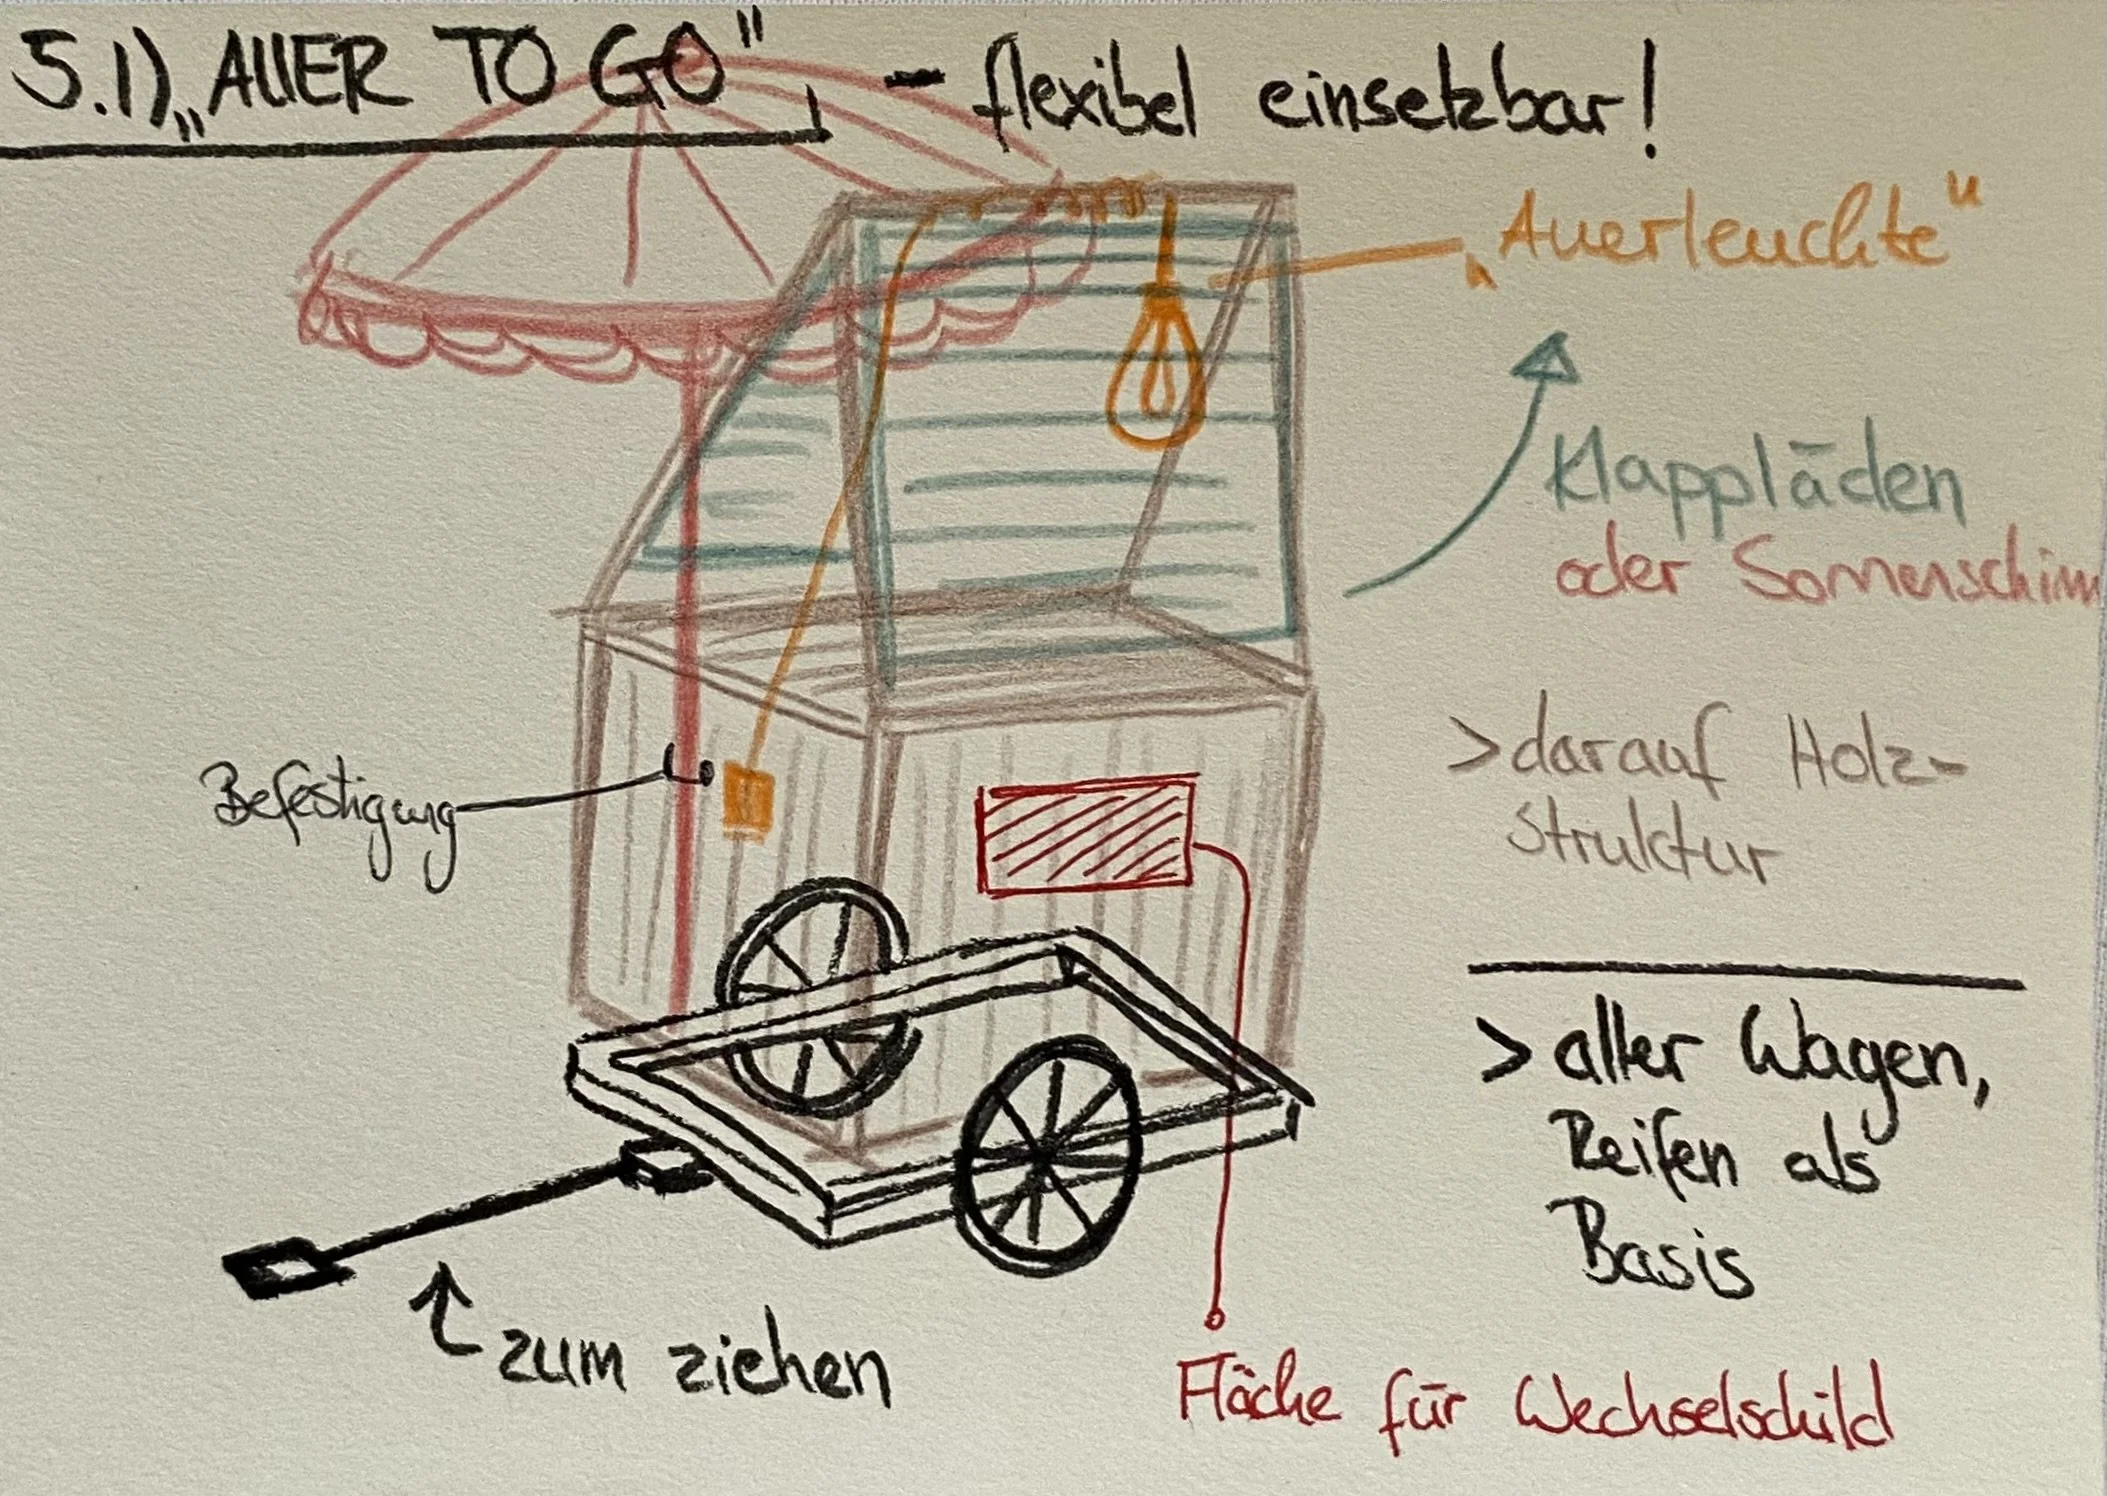 5.1) „AUER TO GO" - flexibel einsetzbar!
„Auerleuchte"
Klappläden
oder Sonnenschirm
>darauf Holz-
struktur
Befestigung
> alter Wagen,
Reifen als
Basis
zum ziehen
Fläche für Wechselschild